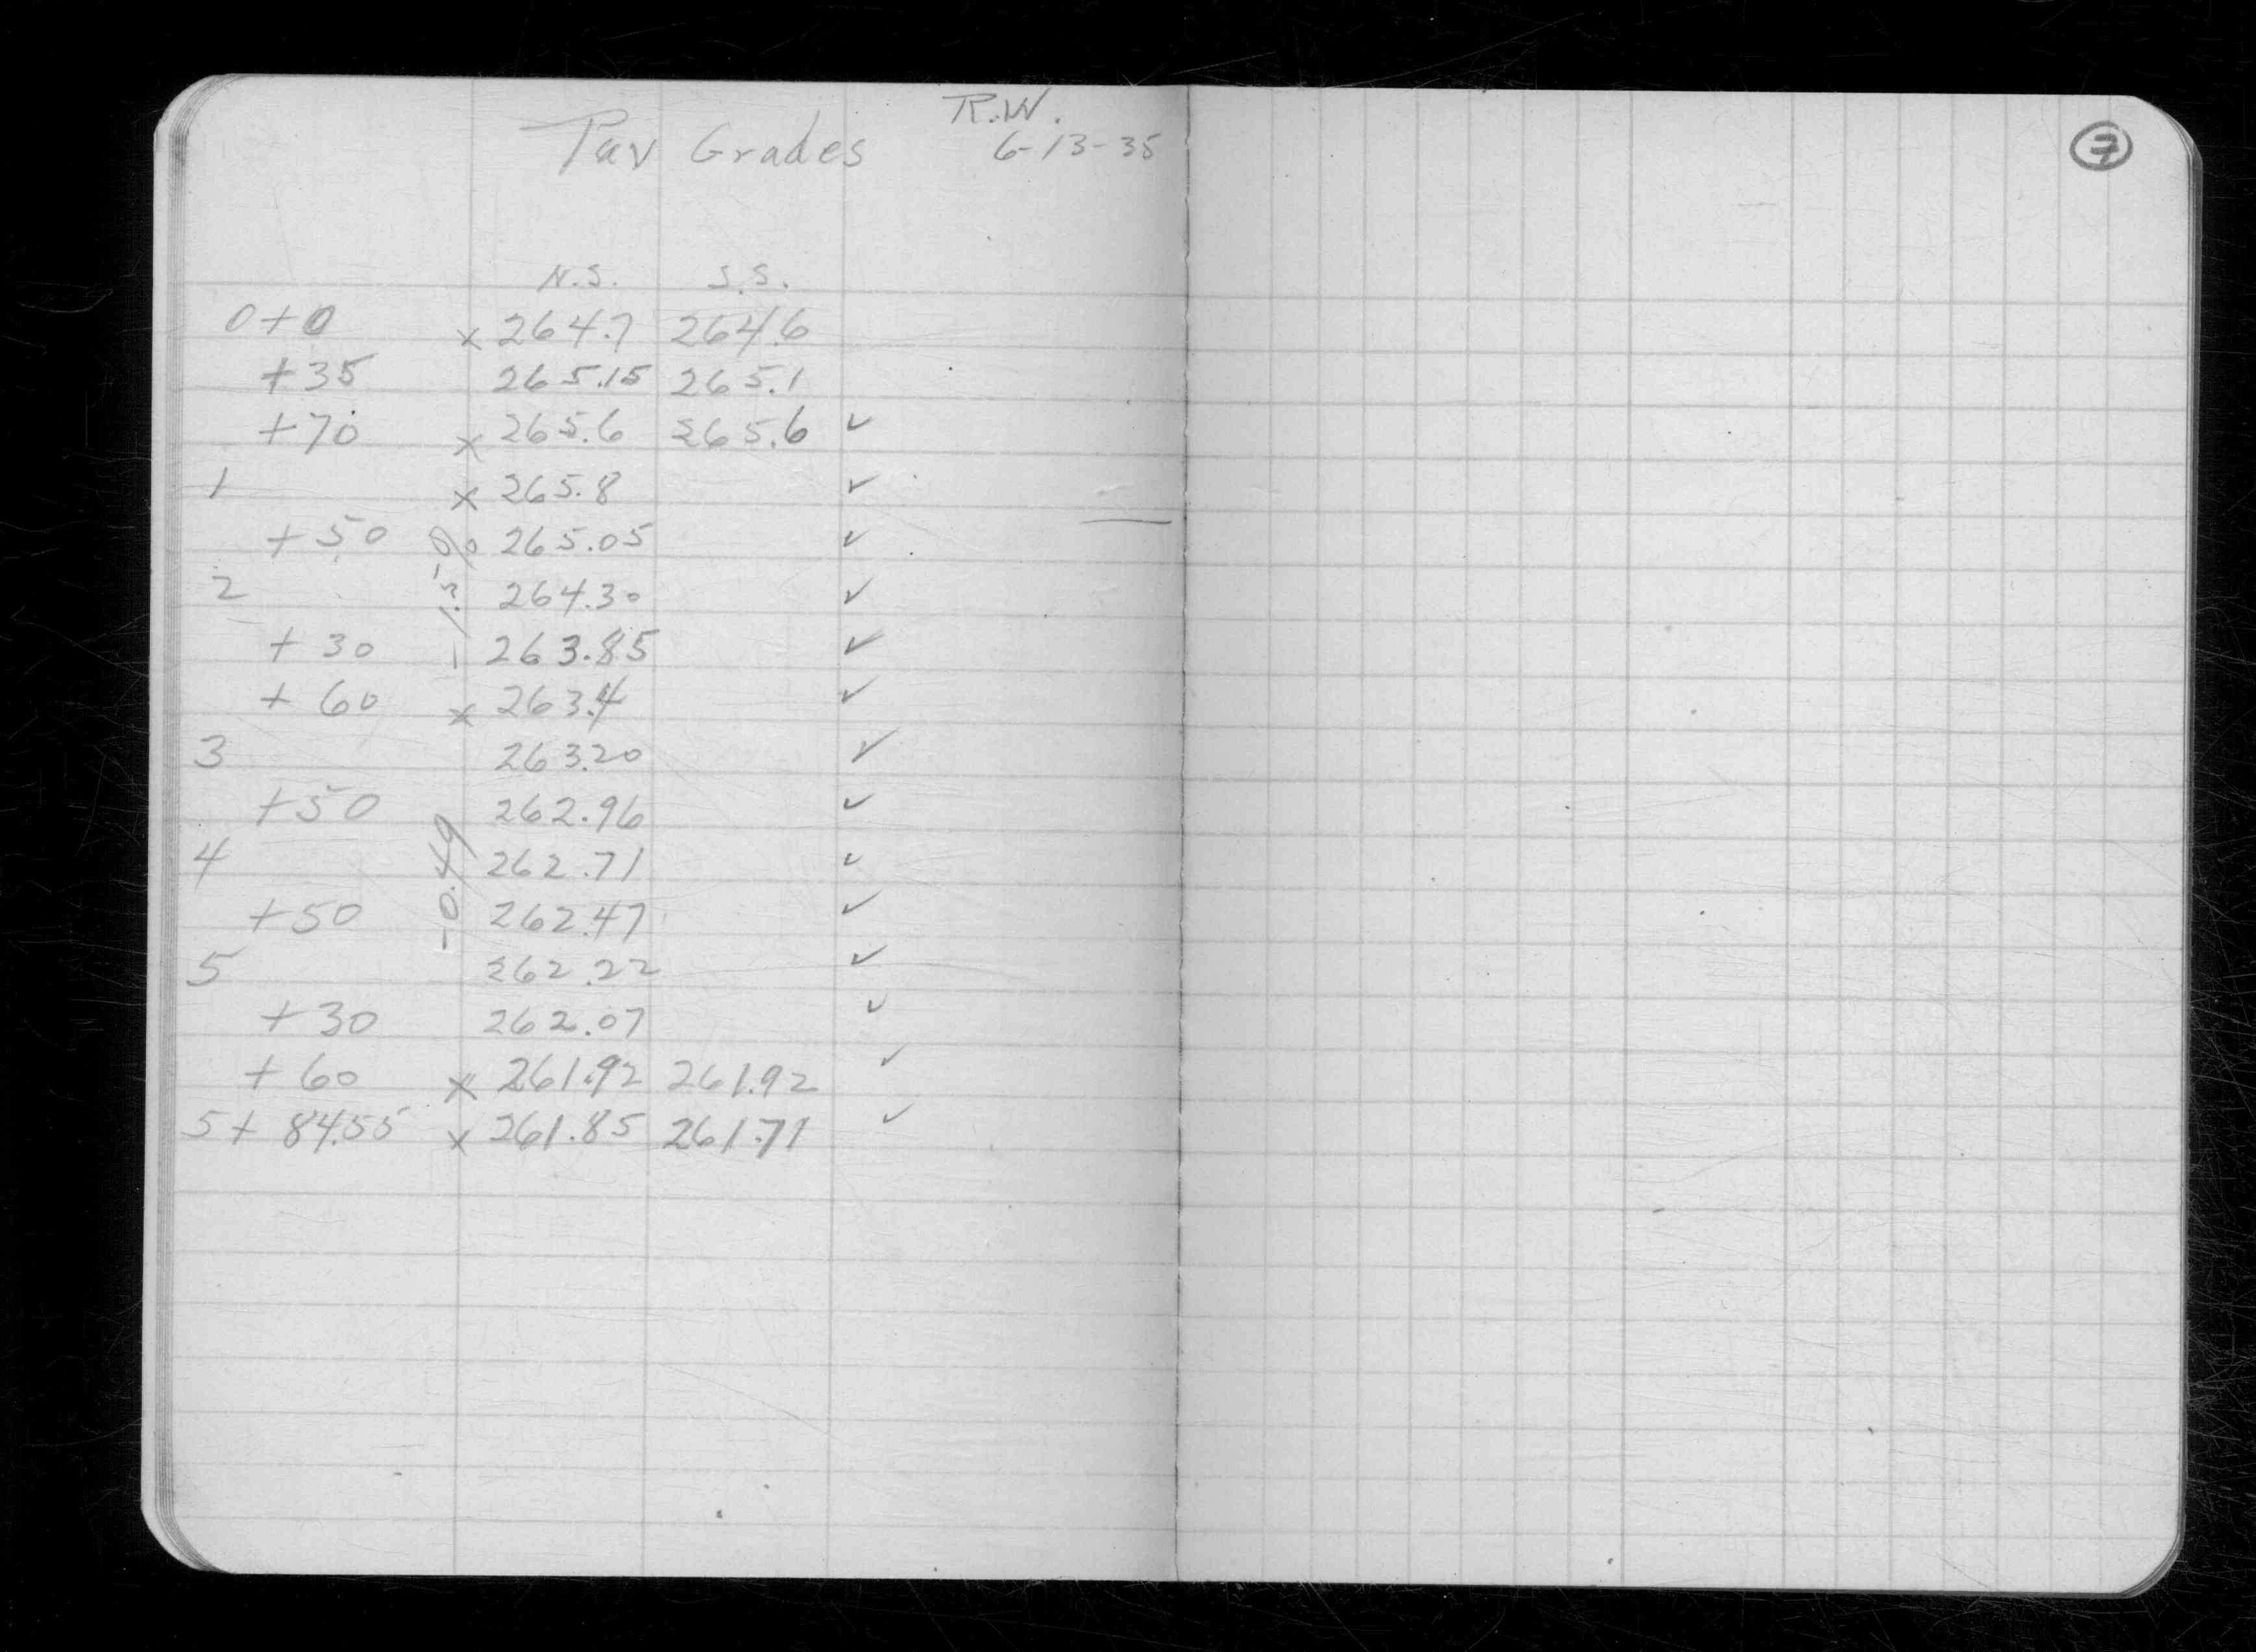 R.W.
Pav Grades 6-13-35
7
N.S. S.S.
0+0 x 264.7 264.6
+35 265.15 265.1
+70 x 265.6 265.6 ✓
1 x 265.8 ✓
+50 265.05 ✓
2 264.30 ✓
+30 263.85 ✓
+60 x 263.4 ✓
-1.5%
3 263.20 ✓
+50 262.96 ✓
4 262.71 ✓
+50 262.47 ✓
-0.49
5 262.22 ✓
+30 262.07 ✓
+60 x 261.92 261.92 ✓
5+84.55 x 261.85 261.71 ✓